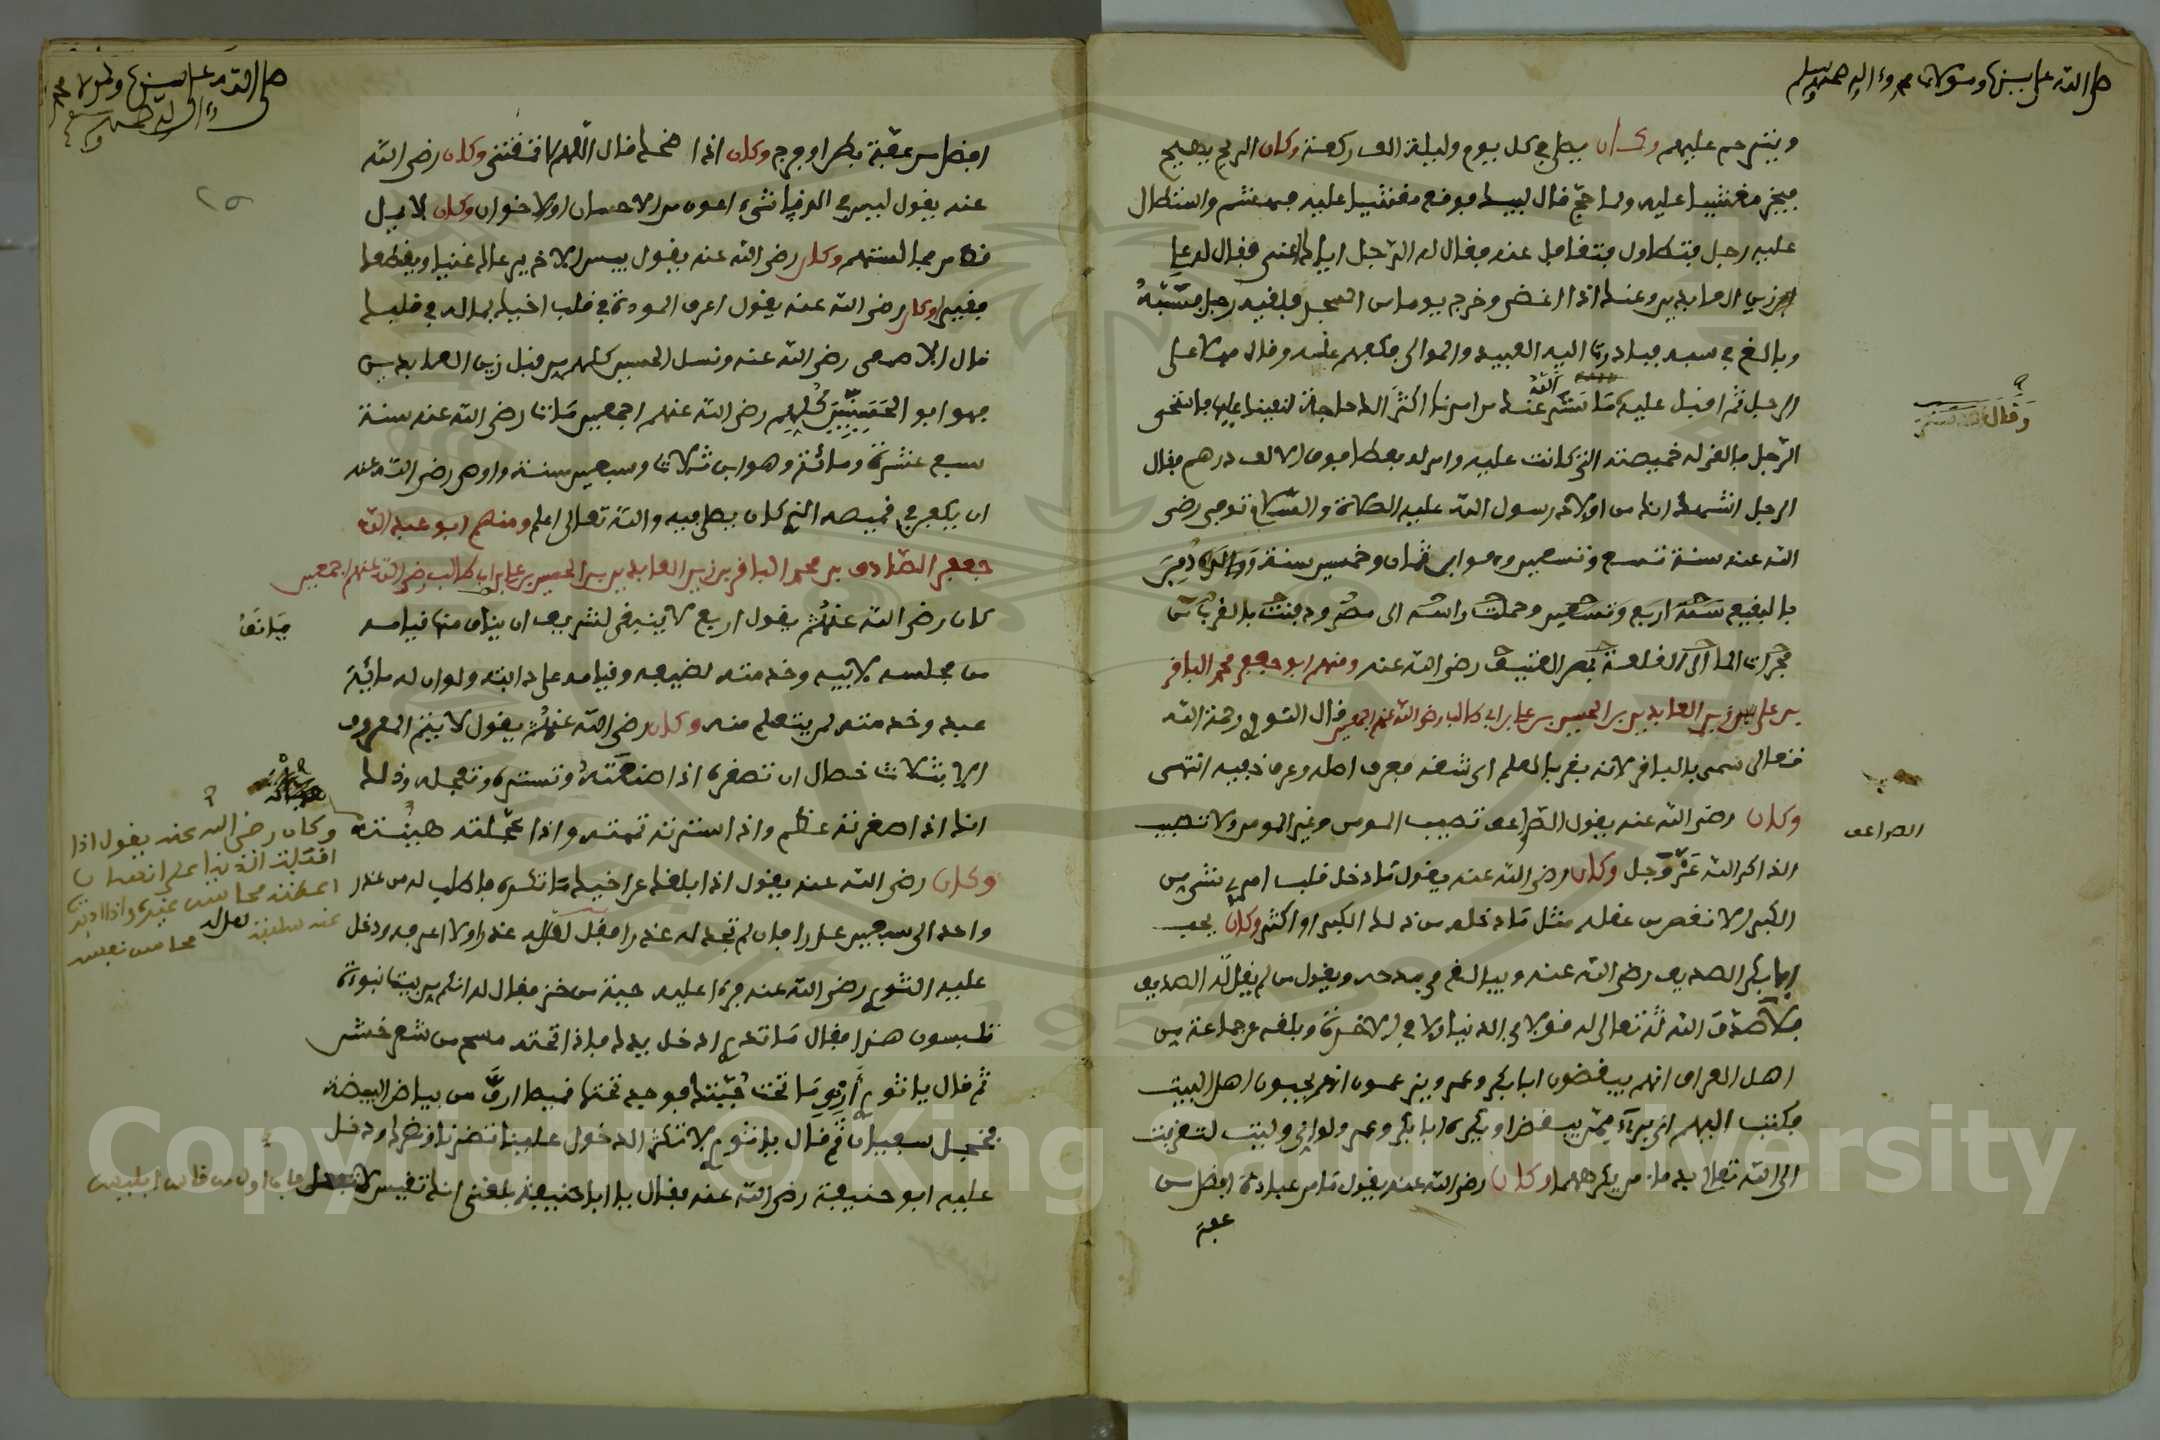 صلى الله على سيدنا ومولانا محمد وءاله وصحبه وسلم
ويترحم عليهم وكان يصلي في كل يوم وليلة الف ركعة وكان الريح يهيج
فيخر مغشيا عليه ولما حج قال لبيك فوقع مغشيا عليه فهشم واستطال
عليه رجل فتطاول فتغافل عنه فقال له الرجل اياك اعني فقال له علي
زين العابدين وعنك اذا اغضى وخرج يوما من المسجد فلقيه رجل فسبه
وبالغ في سبه فبادرت اليه العبيد والموالي فكفهم عنه وقال مهلا على
الرجل ثم اقبل عليه ما ستر الله عنك من امرنا اكثر الك حاجة نعينك عليها فاستحى
الرجل فالقى له خميصته التي كانت عليه وامر له بعطاء فوق الالف درهم فقال
الرجل اشهد انك من اولاد رسول الله عليه الصلاة والسلام توفي رضي
الله عنه سنة تسع وتسعين وهو ابن ثمان وخمسين سنة ودفن
بالبقيع سنة اربع وتسعين وحملت راسه الى مصر ودفنت بالقرب من
مجرات الماء الى القلعة بمصر العتيقة رضي الله عنه ومنهم ابو جعفر محمد الباقر
بن علي زين العابدين بن الحسين بن علي بن ابي طالب رضي الله عنهم اجمعين قال النووي رحمة الله
تعالى سمي بالباقر لانه بقر العلم اي شقه فعرف اصله وعرف خفيه انتهى
وكان رضي الله عنه يقول الصواعق تصيب المومن وغير المومن ولا تصيب
الذاكر الله عز وجل وكان رضي الله عنه يقول ما دخل قلب امرئ شيء من
الكبر الا نقص من عقله مثل ما دخله من ذلك الكبر او اكثر وكان يحب
ابا بكر الصديق رضي الله عنه ويبالغ في مدحه ويقول من لم يقل له الصديق
فلا صدق الله تعالى له قولا في الدنيا ولا في الاخرة وبلغه عن جماعة من
اهل العراق انهم يبغضون ابا بكر وعمر ويزعمون انهم يحبون اهل البيت
فكتب اليهم اني بريء ممن يبغض او يكره ابا بكر وعمر ولو اني وليت لتقربت
الى الله تعالى بدماء من يكرههما وكان رضي الله عنه يقول ما من عبادة افضل من
عفة
وقال
الصواعق
صلى الله على سيدنا ومولانا محمد
وءاله وصحبه وسلم
٢٥
افضل من عفة بطن او فرج وكان اذا ضحك قال اللهم لا تمقتني وكان رضي الله
عنه يقول ليس في الدنيا شيء اعون من الاحسان الى الاخوان وكان لا يمل
قط من مجالستهم وكان رضي الله عنه يقول بيس الاخ يرعاك غنيا ويقطعك
فقيرا وكان رضي الله عنه يقول اعرف المودة في قلب اخيك بما له في قلبك
قال الاصمعي رضي الله عنه ونسل الحسين كلهم من قبل زين العابدين
فهو ابو الحسينيين كلهم رضي الله عنهم اجمعين مات رضي الله عنه سنة
سبع عشرة ومائة وهو ابن ثلاث وسبعين سنة واوصى رضي الله عنه
ان يكفن في قميصه الذي كان يصلي فيه والله تعالى اعلم ومنهم ابو عبد الله
جعفر الصادق بن محمد الباقر بن زين العابدين بن الحسين بن علي بن ابي طالب رضي الله عنهم اجمعين
كان رضي الله عنهم يقول اربع لا ينبغي لشريف ان يانف منها قيامه
من مجلسه لابيه وخدمته لضيفه وقيامه على دابته ولو ان له مائة
عبد وخدمته لمن يتعلم منه وكان رضي الله عنهم يقول لا يتم المعروف
الا بثلاث خصال ان تصغره اذا صنعته وتستره وتعجله وذلك
انك اذا صغرته عظم واذا سترته تممته واذا عجلته هنيته
وكان رضي الله عنه يقول اذا بلغك عن اخيك ما تكره فاطلب له من عذر
واحد الى سبعين عذرا فان لم تجد له عذرا فقل لعل له عذرا ولا اعرفه ودخل
عليه الثوري رضي الله عنه فرءا عليه جبة من خز فقال له انكم من بيت نبوة
تلبسون هذا فقال ما تدري ادخل يدك فاذا تحته مسح من شعر خشن
ثم قال يا ثوري ارني ما تحت جبتك فوجد تحتها قميصا ارق من بياض البيض
فخجل سفيان ثم قال يا ثوري لا تكثر الدخول علينا تضرنا ونضرك ودخل
عليه ابو حنيفة رضي الله عنه فقال يا ابا حنيفة بلغني انك تقيس لا تفعل فان اول من قاس ابليس
يانف
وكان رضي الله عنه يقول اذا
اقبلت الدنيا على انسان
اعطته محاسن غيره واذا ادبرت
عنه سلبته محاسن نفسه